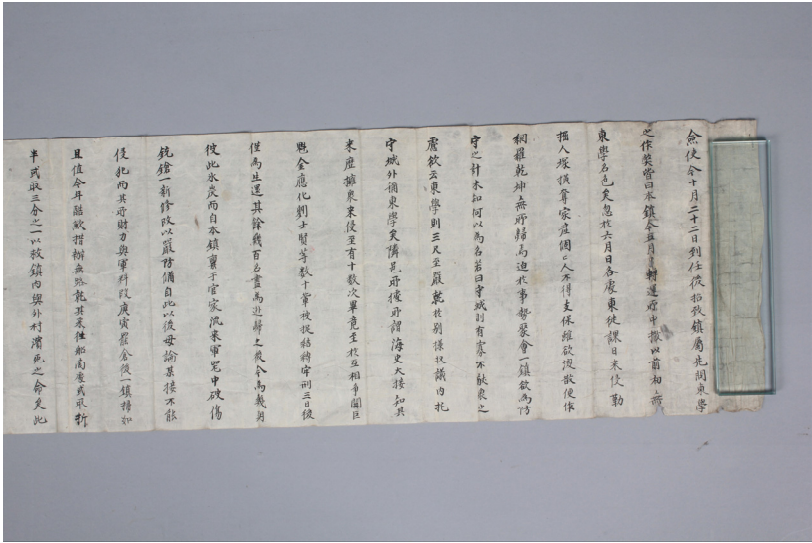 僉使今十月二十二日到任後招致鎮屬先問東學
之作奘皆曰本鎮今五月轉運所中撤以前初無
東學名色矣忽於六月日各處東徒課日來侵勒
掘人塚攘奪家産個個人不得支保雖欲渙散便作
網羅乾坤無所歸高迫於事勢聚會一鎮欲為防
守之計未知何以為名若曰守城則有寡不敵衆之
慮欲云東學則三尺至嚴乾於別樣牧議内托
守城外稱東學矣隣邑所據所謂海史大接知其
來歷擁衆來侵至有十數次畢竟至於互相爭鬪巨
魁金應化劉士賢等數十輩被捉結縛牢刑三日後
僅為生還其餘幾百名盡為逃歸之後今為幾朔
彼此氷炭而自本鎮稟于官家流來軍器中破傷
銃鎗一新修改以嚴防備自此以後毋論某接不能
侵犯而其所財力與軍料段廣寅罷金後一鎮掃如
且值今年酷歉措辦無路就其來往船商處或取折
半或取三分之一以救鎮内與外村濱死之命矣此